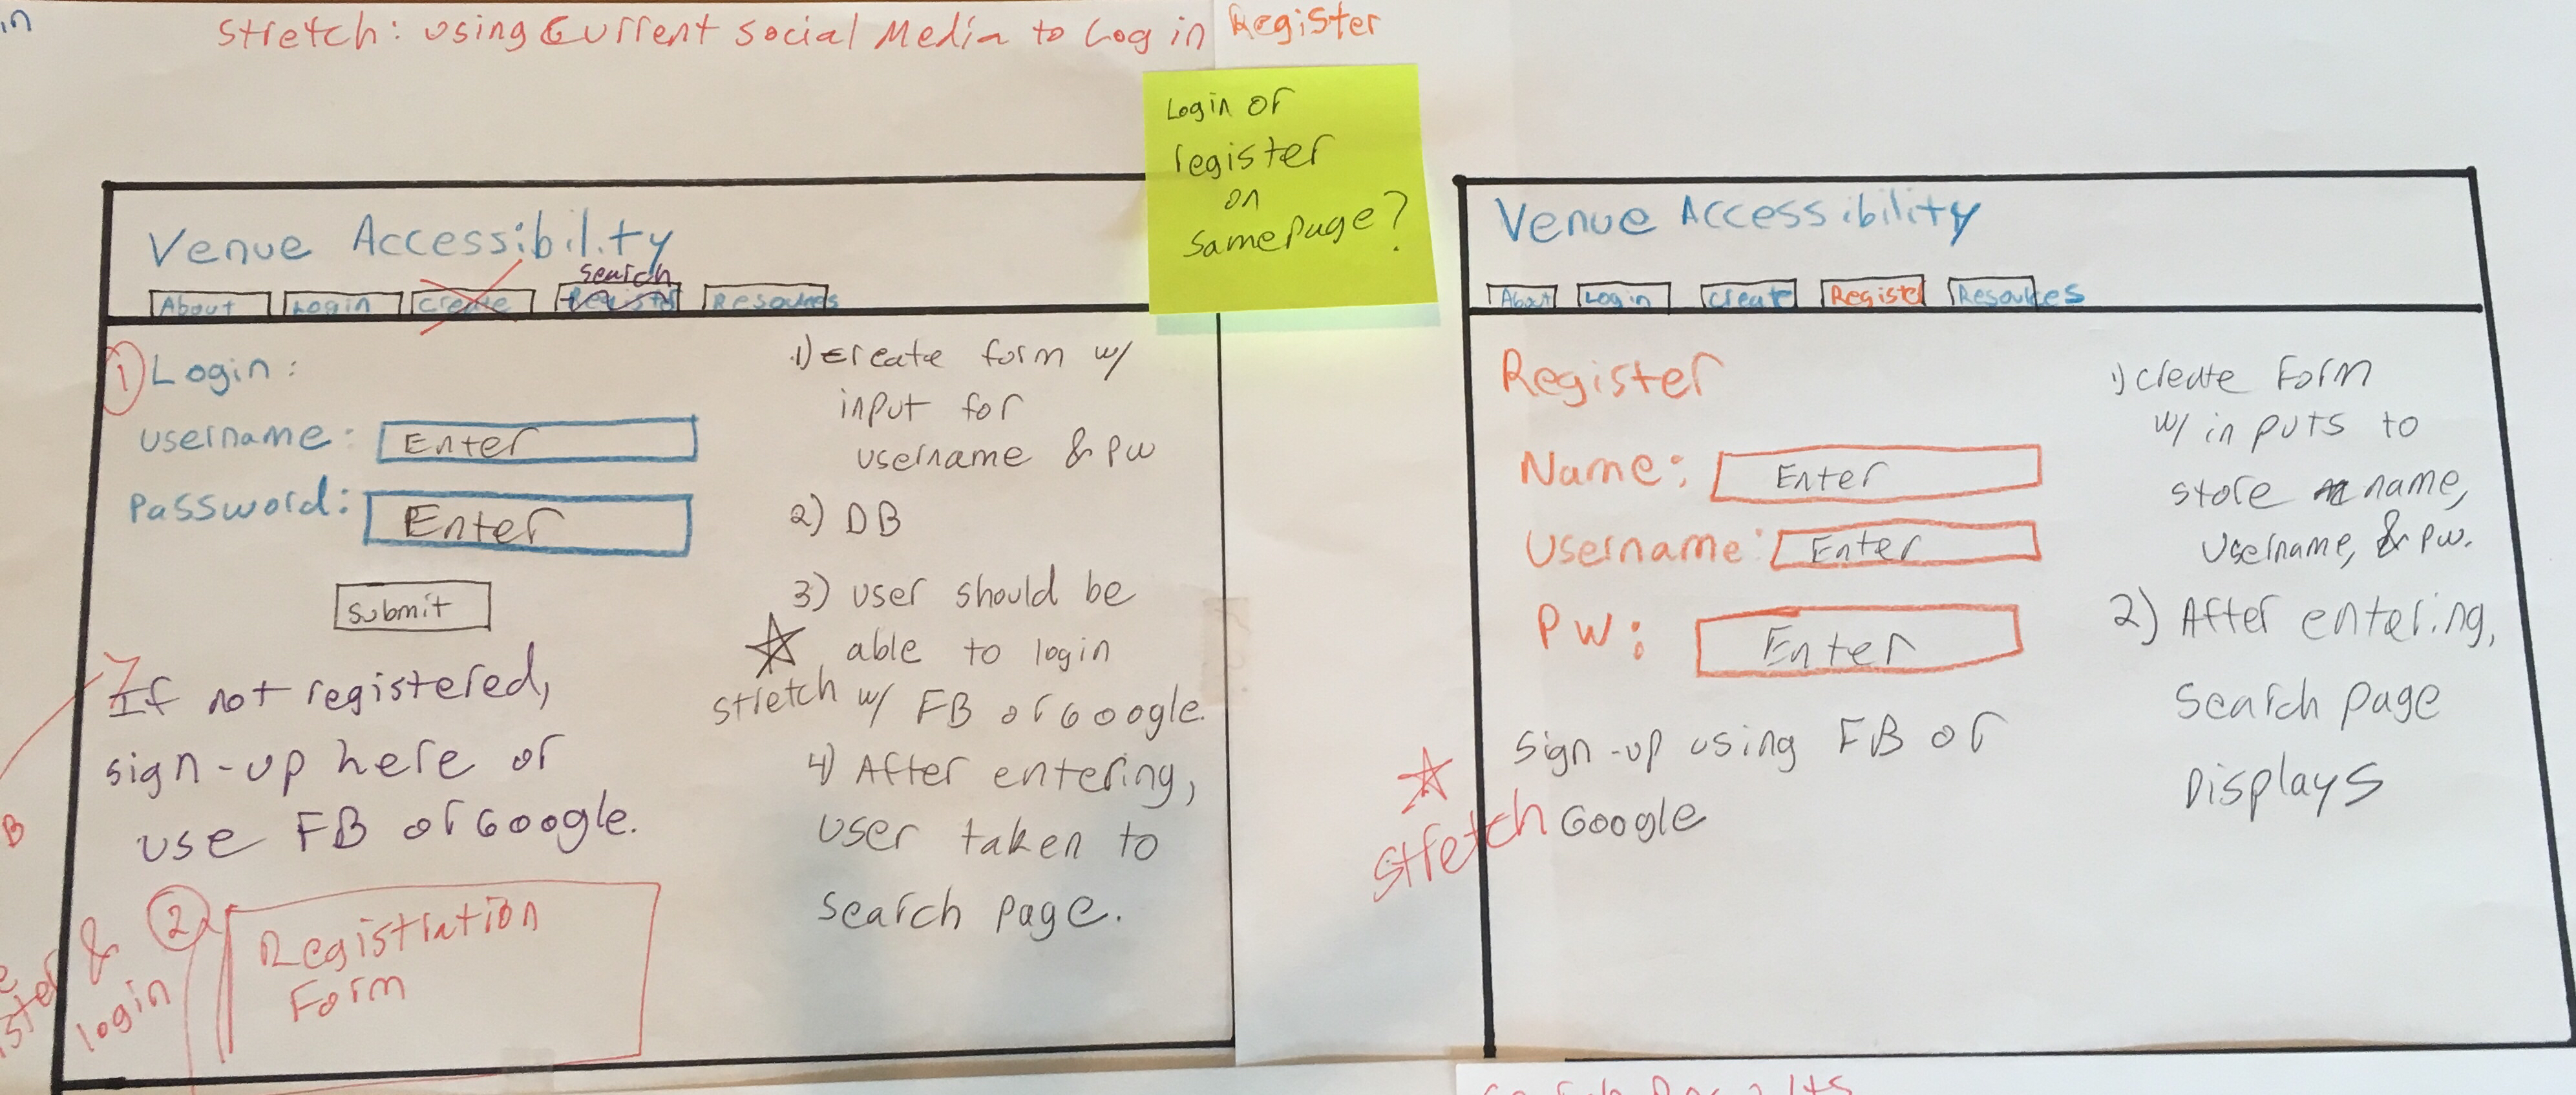 in
Stretch: Using Current Social Media to Log in
Register
Login or
register
on
same page?
Venue Accessibility
search
About Login Create Register Resources
1 Login:
username: Enter
Password: Enter
Submit
If not registered,
sign-up here or
use FB or Google.
B
2
& login
Registration
Form
1) create form w/
input for
username & pw
2) DB
3) user should be
able to login
stretch w/ FB or Google.
4) After entering,
user taken to
search page.
Venue Accessibility
About Login Create Register Resources
Register
Name: Enter
Username: Enter
PW: Enter
Sign-up using FB or
Stretch Google
1) create Form
w/ inputs to
store name,
Username, & pw.
2) After entering,
search page
Displays